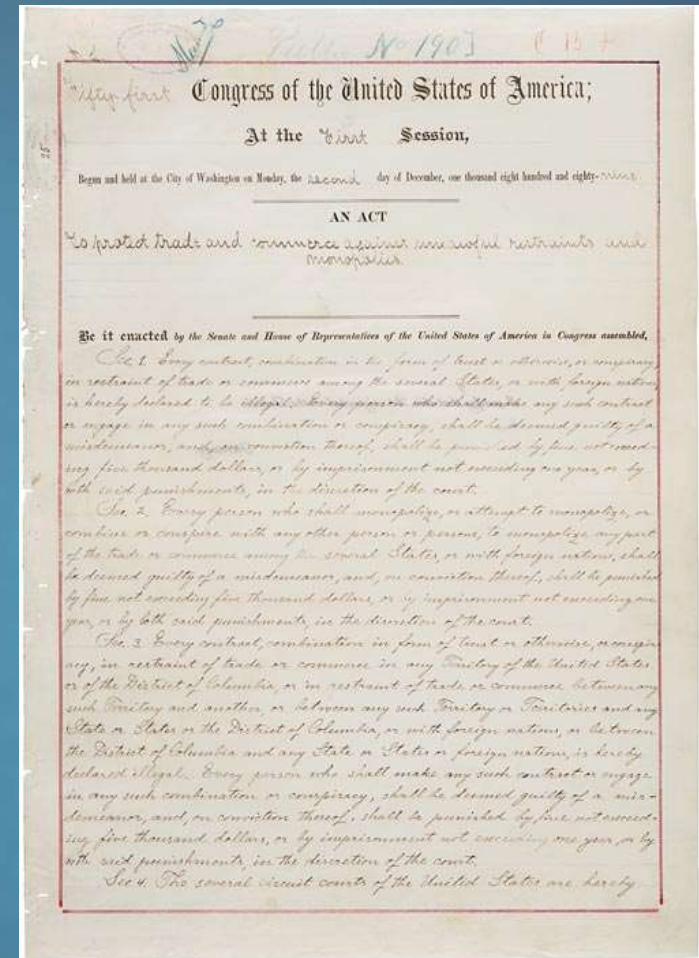 Public No 190]
Fifty-first Congress of the United States of America;
At the First Session,
Begun and held at the City of Washington on Monday, the second day of December, one thousand eight hundred and eighty-nine.
AN ACT
To protect trade and commerce against unlawful restraints and
monopolies.
Be it enacted by the Senate and House of Representatives of the United States of America in Congress assembled,
Sec. 1. Every contract, combination in the form of trust or otherwise, or conspiracy,
in restraint of trade or commerce among the several States, or with foreign nations,
is hereby declared to be illegal. Every person who shall make any such contract
or engage in any such combination or conspiracy, shall be deemed guilty of a
misdemeanor, and, on conviction thereof, shall be punished by fine not exceed-
ing five thousand dollars, or by imprisonment not exceeding one year, or by
both said punishments, in the discretion of the court.
Sec. 2. Every person who shall monopolize, or attempt to monopolize, or
combine or conspire with any other person or persons, to monopolize any part
of the trade or commerce among the several States, or with foreign nations, shall
be deemed guilty of a misdemeanor, and, on conviction thereof, shall be punished
by fine not exceeding five thousand dollars, or by imprisonment not exceeding one
year, or by both said punishments, in the discretion of the court.
Sec. 3. Every contract, combination in form of trust or otherwise, or conspir-
acy, in restraint of trade or commerce in any Territory of the United States
or of the District of Columbia, or in restraint of trade or commerce between any
such Territory and another, or between any such Territory or Territories and any
State or States or the District of Columbia, or with foreign nations, or between
the District of Columbia and any State or States or foreign nations, is hereby
declared illegal. Every person who shall make any such contract or engage
in any such combination or conspiracy, shall be deemed guilty of a mis-
demeanor, and, on conviction thereof, shall be punished by fine not exceed-
ing five thousand dollars, or by imprisonment not exceeding one year, or by
both said punishments, in the discretion of the court.
Sec. 4. The several circuit courts of the United States are hereby